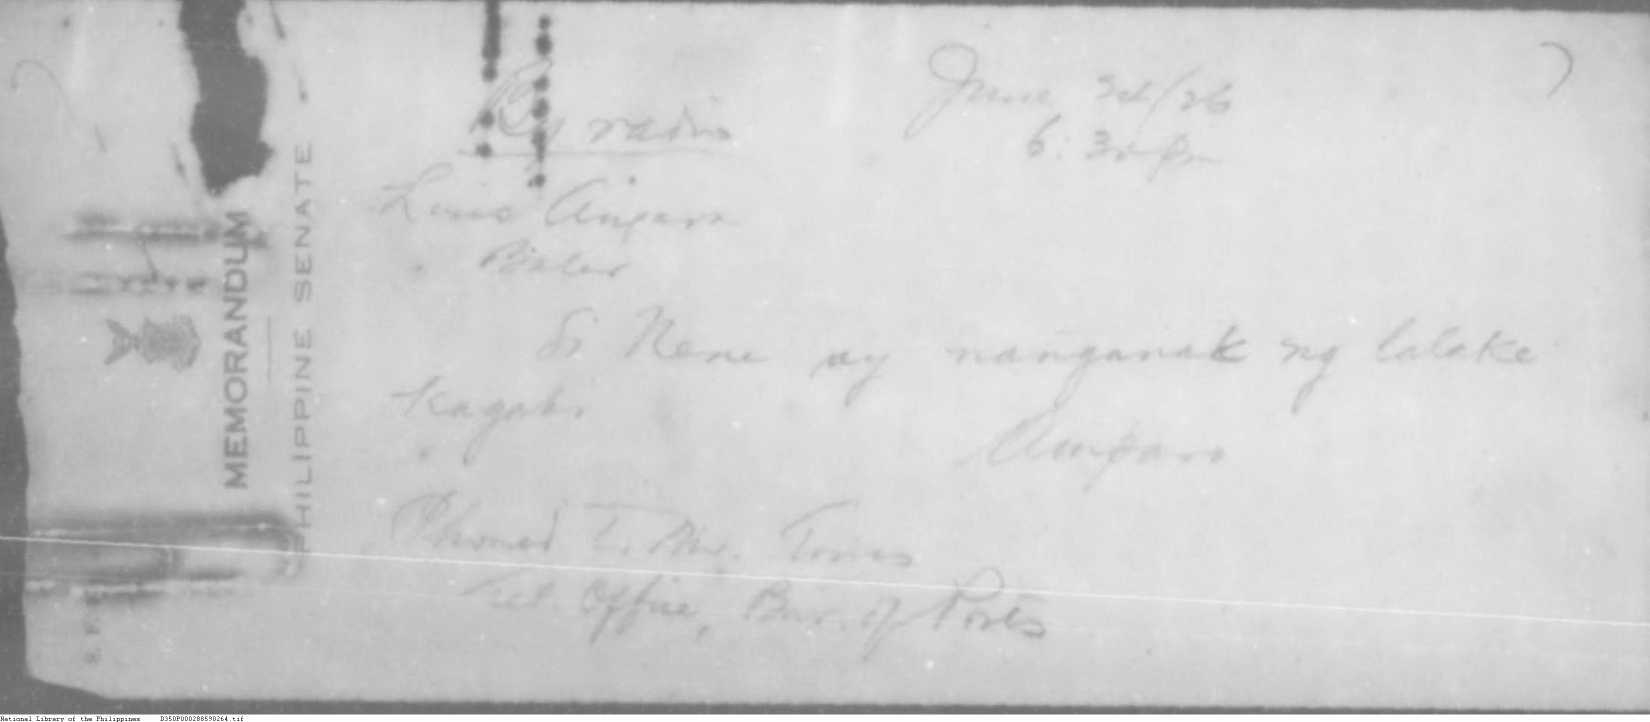 MEMORANDUM
PHILIPPINE SENATE
By radio
June 24/26
6:30 pm
Luis Angara
Baler
Si Nene ay nanganak ng lalake
kagabi
Amparo
Phoned to Mr. Torres
Tel. Office, Bur. of Posts
National Library of the Philippines D350P000288590264.tif